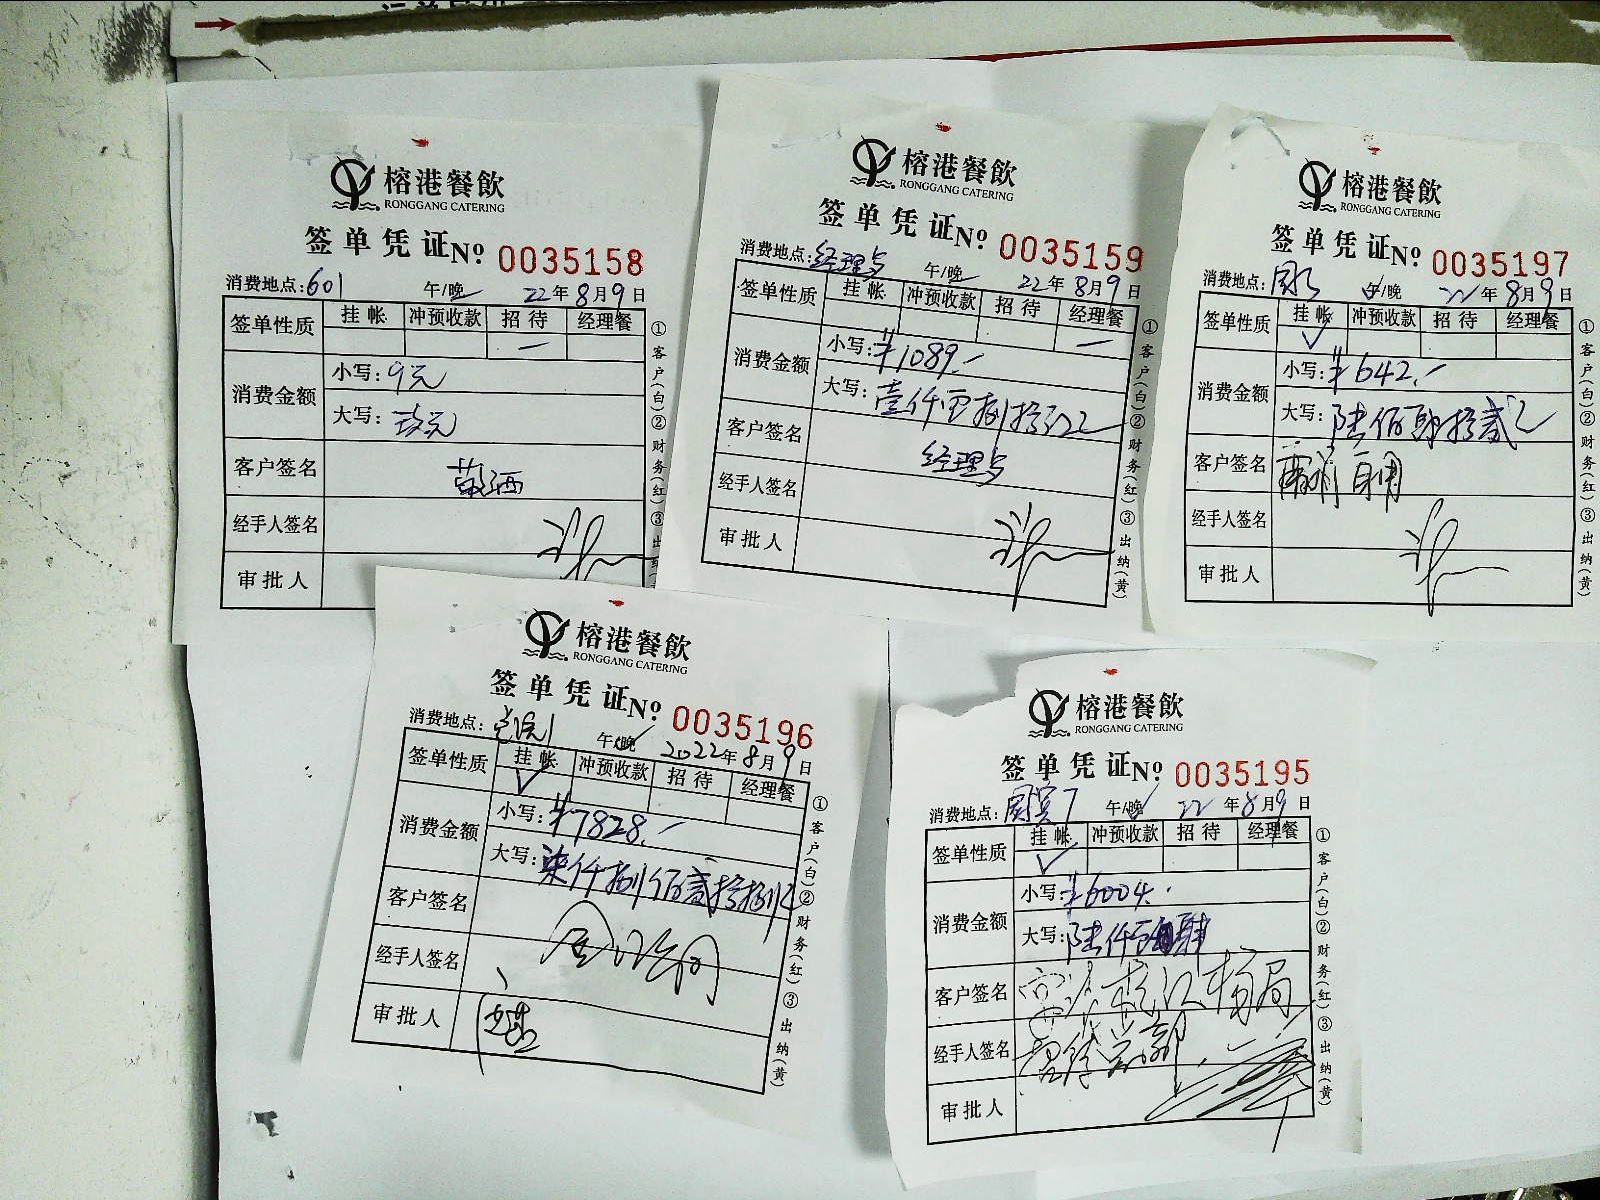 榕港餐飲
RONGGANG CATERING
签单凭证 Nº 0035158
消费地点:601 午/晚 22年8月9日
签单性质 挂帐 冲预收款 招待 经理餐
消费金额 小写:9元
大写:玖元
客户签名
经手人签名
审批人
①客户(白)②财务(红)③出纳(黄)
榕港餐飲
RONGGANG CATERING
签单凭证 Nº 0035159
消费地点:经理 午/晚 22年8月9日
签单性质 挂帐 冲预收款 招待 经理餐
消费金额 小写:¥1089.-
大写:壹仟零捌拾
客户签名 经理
经手人签名
审批人
①客户(白)②财务(红)③出纳(黄)
榕港餐飲
RONGGANG CATERING
签单凭证 Nº 0035197
消费地点: 午/晚 22年8月9日
签单性质 挂帐 冲预收款 招待 经理餐
消费金额 小写:¥642.-
大写:陆佰肆拾贰元
客户签名 自用
经手人签名
审批人
①客户(白)②财务(红)③出纳(黄)
榕港餐飲
RONGGANG CATERING
签单凭证 Nº 0035196
消费地点: 午/晚 2022年8月9日
签单性质 挂帐 冲预收款 招待 经理餐
消费金额 小写:¥7828.-
大写:柒仟捌佰贰拾捌元
客户签名
经手人签名
审批人
①客户(白)②财务(红)③出纳(黄)
榕港餐飲
RONGGANG CATERING
签单凭证 Nº 0035195
消费地点: 午/晚 22年8月9日
签单性质 挂帐 冲预收款 招待 经理餐
消费金额 小写:¥6004.
大写:陆仟零肆
客户签名
经手人签名
审批人
①客户(白)②财务(红)③出纳(黄)